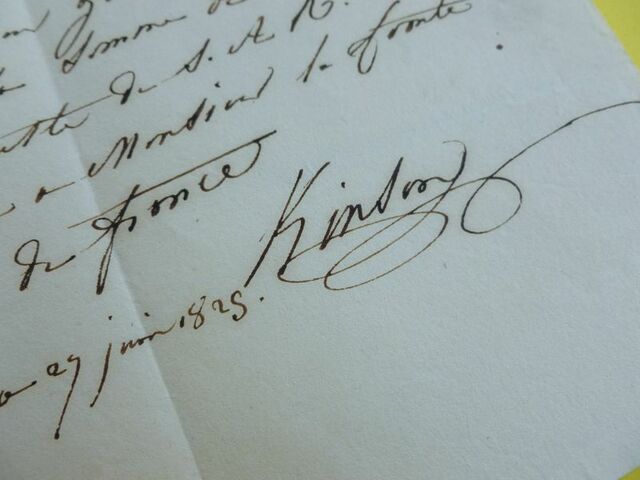 Somme de
de S. A. R.
a Monsieur le Comte
de france
Kinson
27 juin 1825.